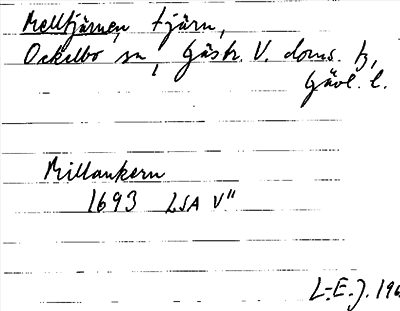 Melltjärnen, tjärn,
Ockelbo sn, Gästr. V. doms. tg,
Gävl. l.
Millankern
1693 LSA V"
L-E. J. 196